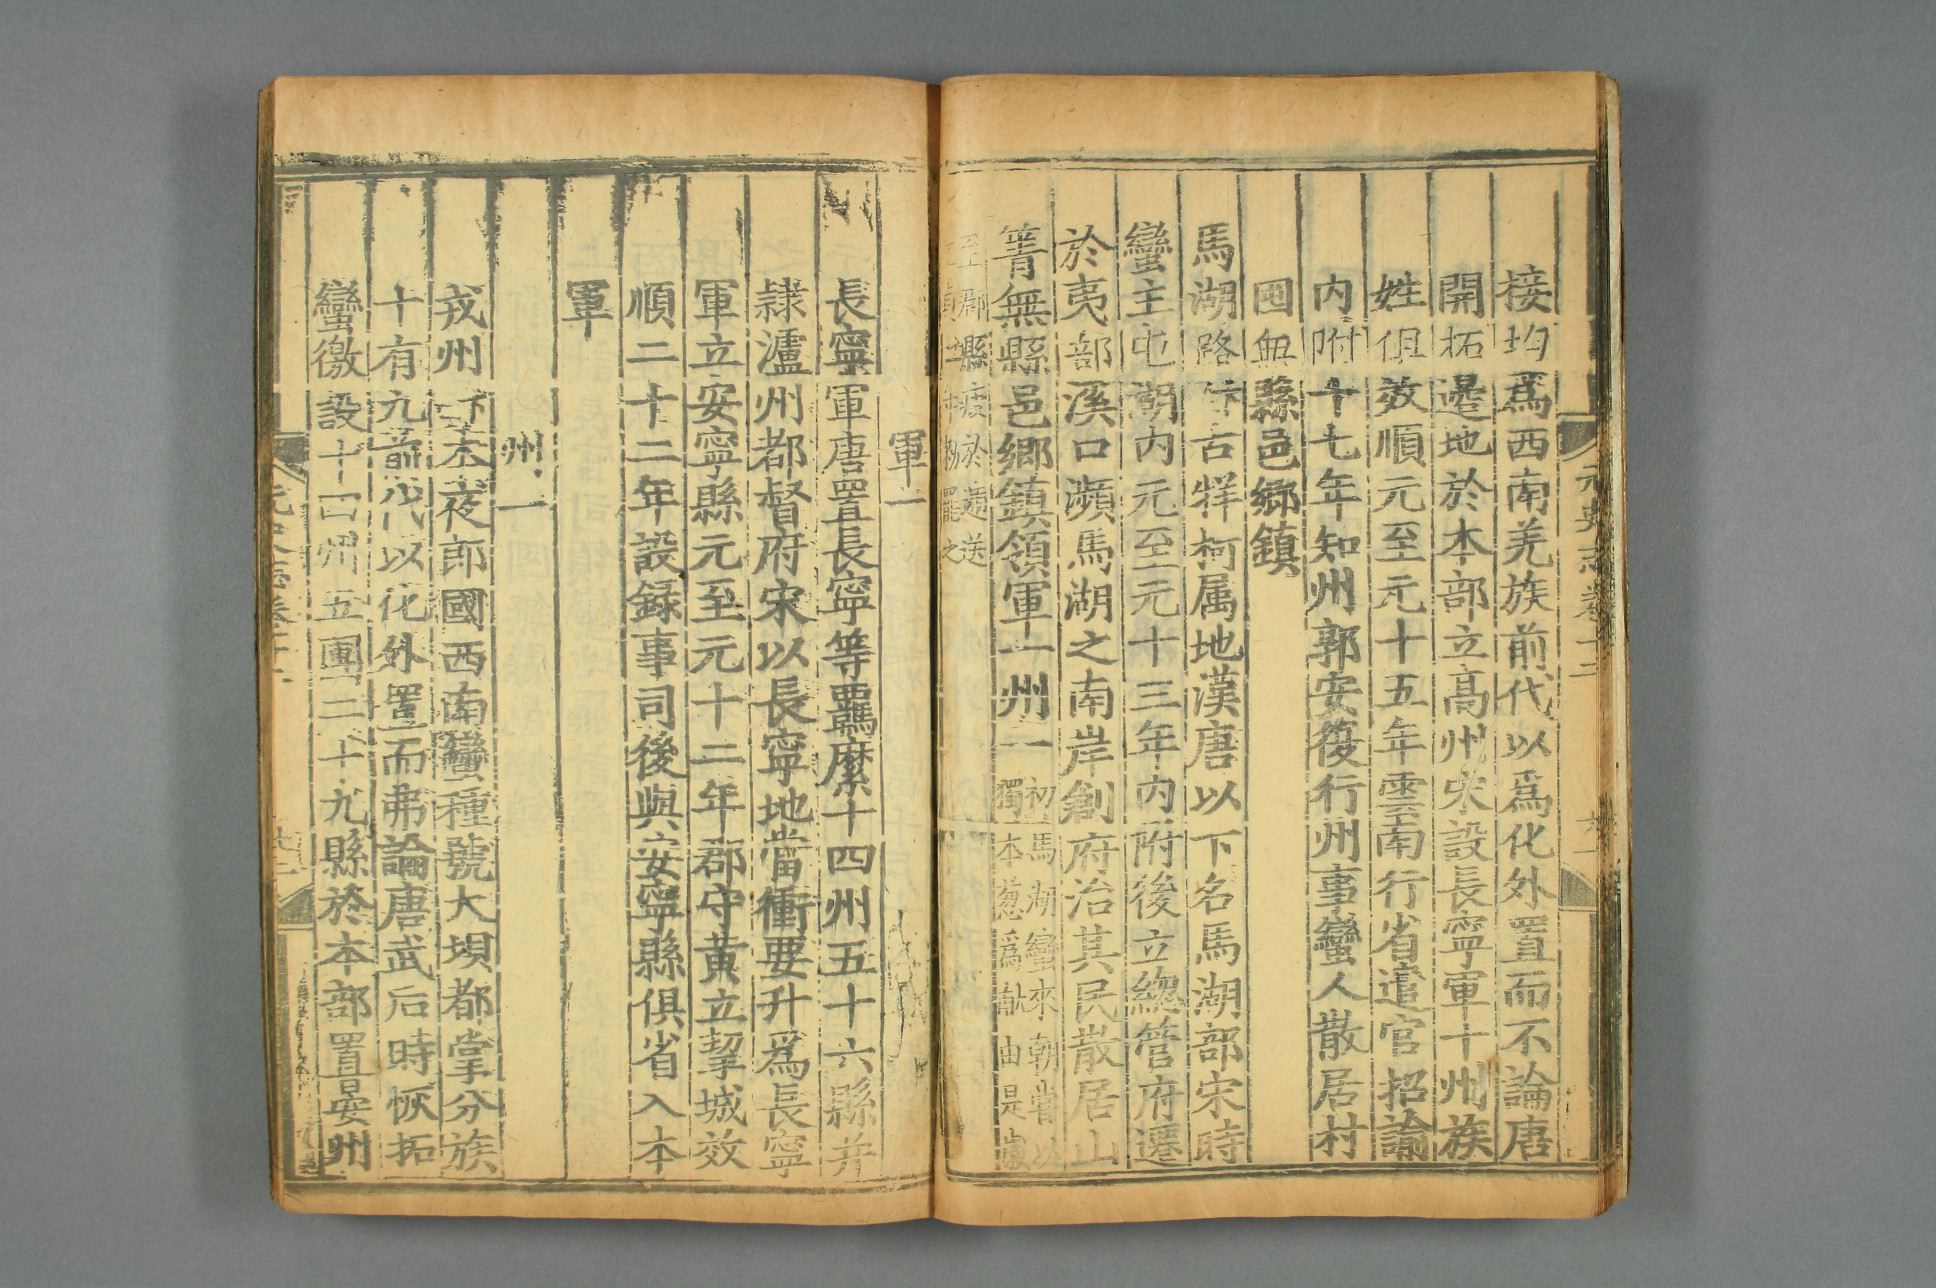 元史志卷十二
接均爲西南羌族前代以爲化外置而不論唐
開拓邊地於本部立高州宋設長寧軍十州族
姓俱效順元至元十五年雲南行省遣官招諭
内附十七年知州郭安復行州事蠻人散居村
囤無縣邑鄉鎮
馬湖路下古牂柯属地漢唐以下名馬湖部宋時
蠻主屯湖内元至元十三年内附後立總管府遷
於夷部溪口瀕馬湖之南岸創府治其民散居山
箐無縣邑鄉鎮領軍一州一
初馬湖蠻來朝嘗以
獨本葱爲献由是
至郡縣疲於遞送
之
軍一
長寧軍唐置長寧等羈縻十四州五十六縣并
隷瀘州都督府宋以長寧地當衝要升爲長寧
軍立安寧縣元至元十二年郡守黄立挈城效
順二十二年設録事司後與安寧縣俱省入本
軍
州一
戎州下本夜郎國西南蠻種號大壩都掌分族
十有九前代以化外置而弗論唐武后時恢拓
蠻徼設十四州五團二十九縣於本部置晏州